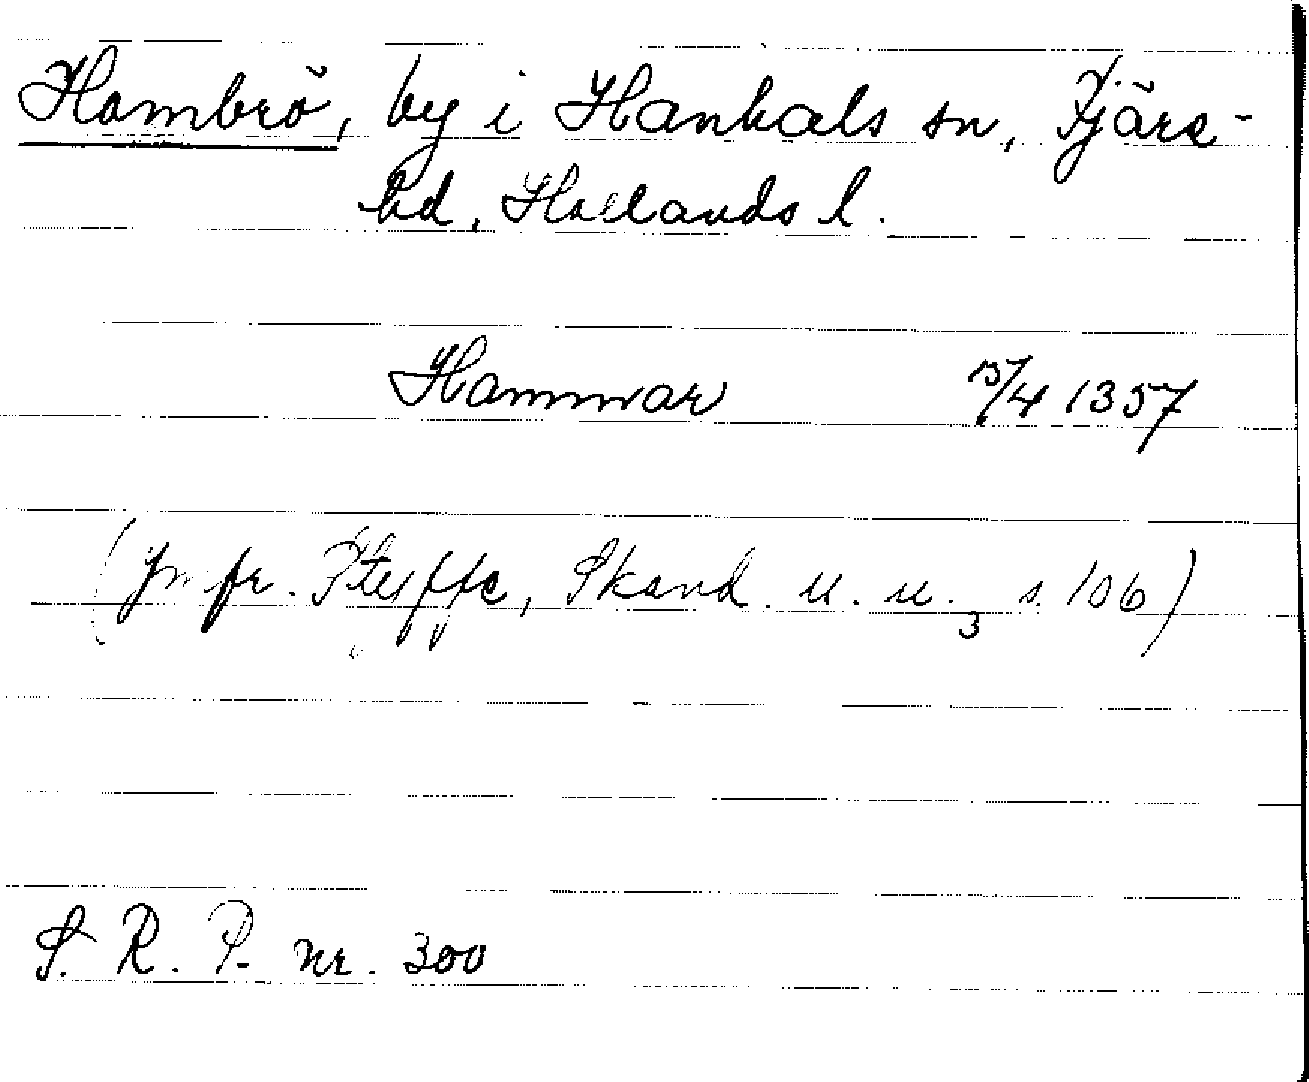 Hambrö, by i Hanhals sn, Fjäre-
hd, Hallands l.
Hammar 15/4 1357
(Jmfr. Steffe, Skand. u. u.3 s. 106)
S. R. P. nr. 300